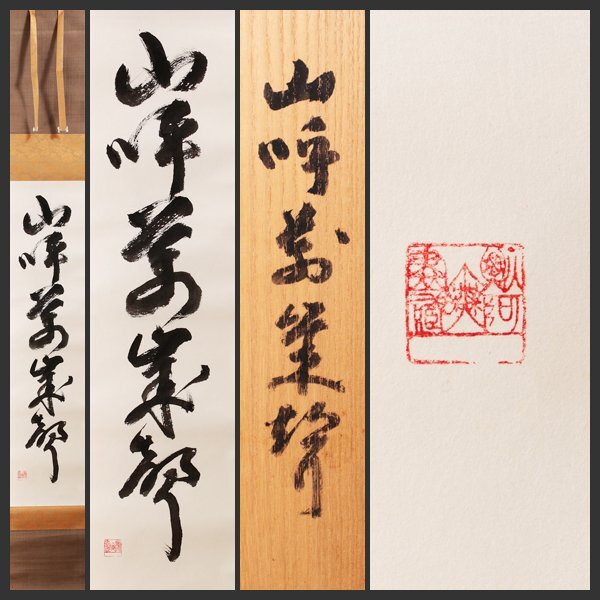 山呼萬歳聲
山呼萬歳聲
山呼萬歳聲